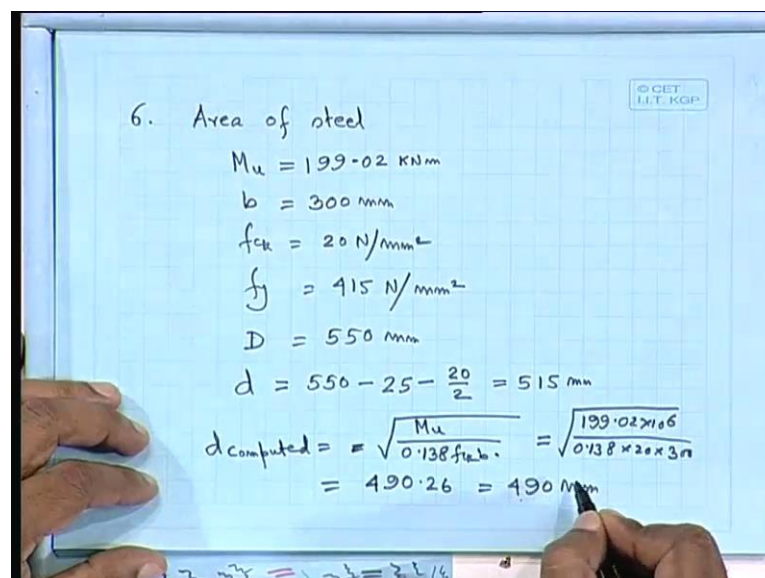 © CET
I.I.T. KGP
6. Area of steel
Mu = 199.02 KNm
b = 300 mm
fck = 20 N/mm²
fy = 415 N/mm²
D = 550 mm
d = 550 - 25 - 20/2 = 515 mm
d computed = = √(Mu / 0.138 fck b.) = √(199.02 × 10⁶ / 0.138 × 20 × 300)
= 490.26 = 490 mm